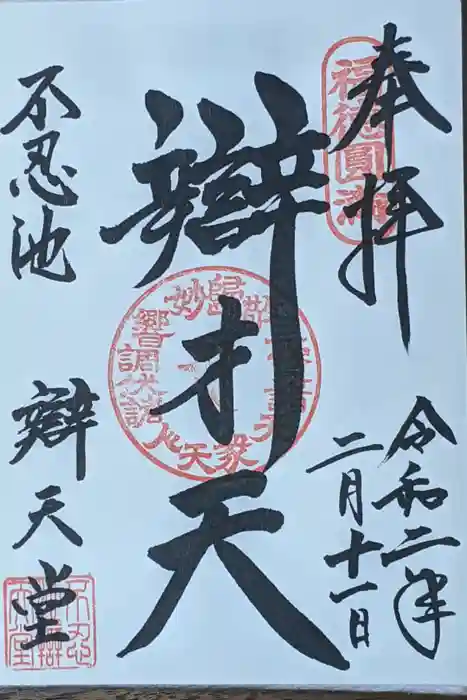 奉拝
福徳圓満
令和二年
二月十一日
辯才天
不忍池
辯天堂